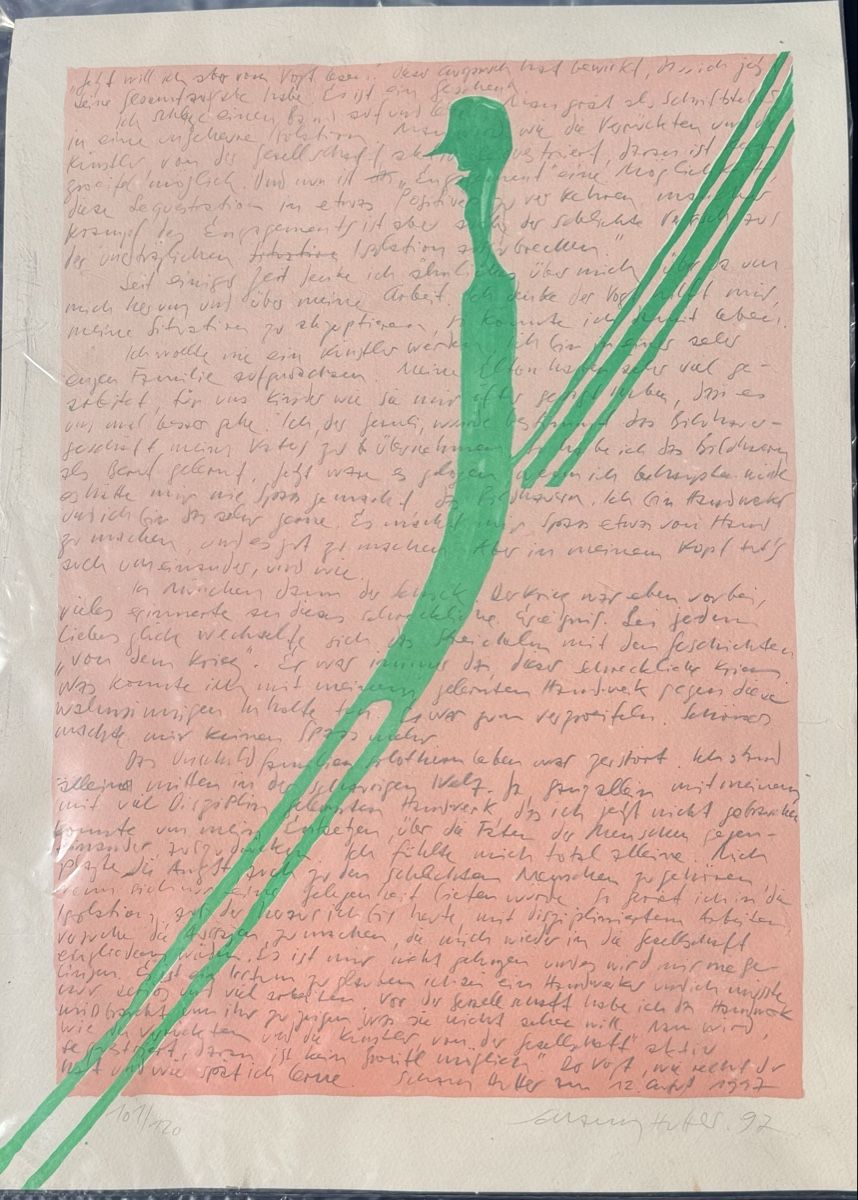 "Jetzt will ich aber vom Vogt lesen!" Dieser Ausspruch hat bewirkt, dass ich jetzt
seine Gesamtausgabe habe. Es ist ein Geschenk
Ich schlage einen Band auf und Man gerät als Schriftsteller
in eine ungeheure Isolation. Man wird wie die Verrückten und die
Künstler von der Gesellschaft sequestriert, daran ist kein
Zweifel möglich. Und nun ist "Engagement" eine Möglichkeit
diese Sequestration in etwas Positives zu verkehren, mancher
Krampf des Engagements ist aber auch der schlichte Versuch aus
der unerträglichen Situation Isolation auszubrechen."
Seit einiger Zeit denke ich ähnliches über mich, über das um
mich herum und über meine Arbeit. Ich denke der Vogt hilft mir,
meine Situation zu akzeptieren, so könnte ich damit leben.
Ich wollte nie ein Künstler werden. Ich bin in einer sehr
engen Familie aufgewachsen. Meine Eltern haben sehr viel ge-
arbeitet, für uns Kinder wie sie mir öfter gesagt haben, dass es
uns mal besser gehe. Ich, der wurde bestimmt das Bildhauer-
geschäft meines Vaters zu übernehmen. So habe ich das Bildhauern
als Beruf gelernt. Jetzt wäre es gelogen wenn ich behaupten würde
es hätte mir nie Spass gemacht das Bildhauern. Ich bin Handwerker
und ich bin das sehr gerne. Es macht mir Spass etwas von Hand
zu machen, und es gut zu machen. Aber in meinem Kopf hat's
auch
In München dann der Knick. Der Krieg war eben vorbei,
vieles erinnerte an dieses schreckliche Ereignis. Bei jedem
Liebesglück wechselte sich das Streicheln mit den Geschichten
"von dem Krieg". Er war immer da, dieser schreckliche Krieg.
Was konnte ich mit meinem gelernten Handwerk gegen diese
wahnsinnigen Inhalte tun. Es war zum verzweifeln. Schönes
machte mir keinen Spass mehr.
Das Unschuld Familien Solothurn leben war zerstört. Ich stand
alleine mitten in der schwierigen Welt. Ja ganz allein mit meinem
mit viel Disziplin gelernten Handwerk das ich jetzt nicht gebrauchen
konnte um mein Entsetzen über die Taten der Menschen gegen-
einander auszudrücken. Ich fühlte mich total alleine. Mich
plagte die Angst auch zu den schlechten Menschen zu gehören
wenn sich nur eine Gelegenheit bieten würde. So geriet ich in die
Isolation, aus der heraus ich bis heute, mit diszipliniertem Arbeiten
versuche die zu machen, die mich wieder in die Gesellschaft
eingliedern würden. Es ist mir nicht gelungen und es wird mir nie ge-
lingen. Es ist ein Irrtum zu glauben ich sei ein Handwerker und ich müsste
nur und viel arbeiten. Vor der Gesellschaft habe ich das Handwerk
missbraucht um ihr zu zeigen was sie nicht sehen will. Man wird,
wie die Verrückten und die Künstler, von der Gesellschaft aktiv
sequestriert, daran ist kein Zweifel möglich" Du Vogt, wie recht du
hast und wie spät ich lerne. Schang Hutter am 12. August 1997
101/120
Schang Hutter. 97